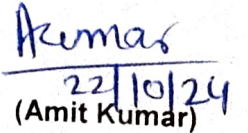 Akumar
22/10/24
(Amit Kumar)